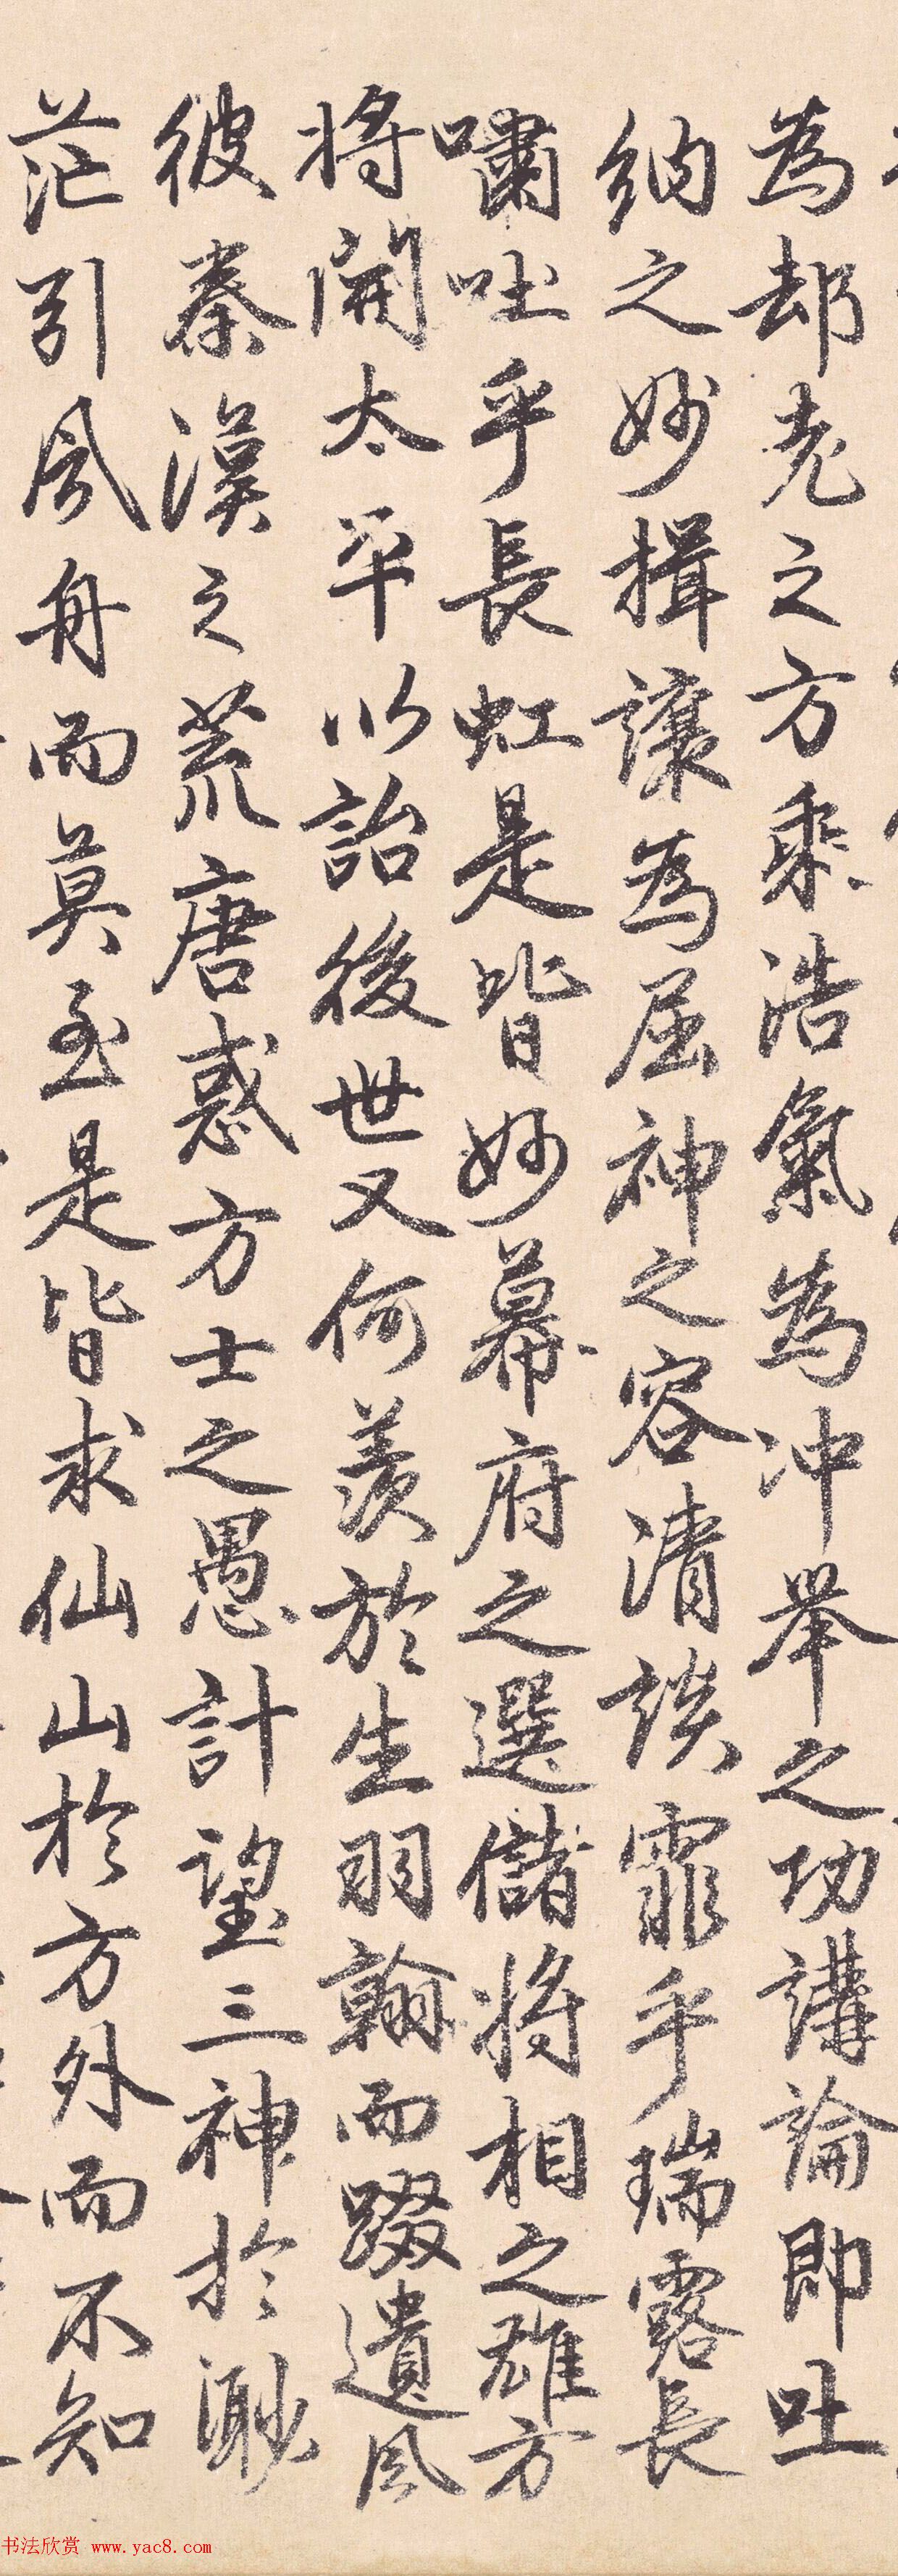 為却老之方乘浩氣為沖舉之功講論即吐
納之妙揖讓為屈神之容清談霏乎瑞露長
嘯吐乎長虹是皆妙幕府之選儲將相之雄方
將開太平以詒後世又何羨於生羽翰而躡遺風
彼秦漢之荒唐惑方士之愚計望三神於渺
茫引風舟而莫至是皆求仙山於方外而不知
书法欣赏 www.yac8.com